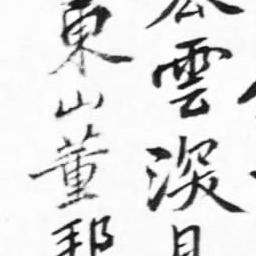 雲深
東山董邦